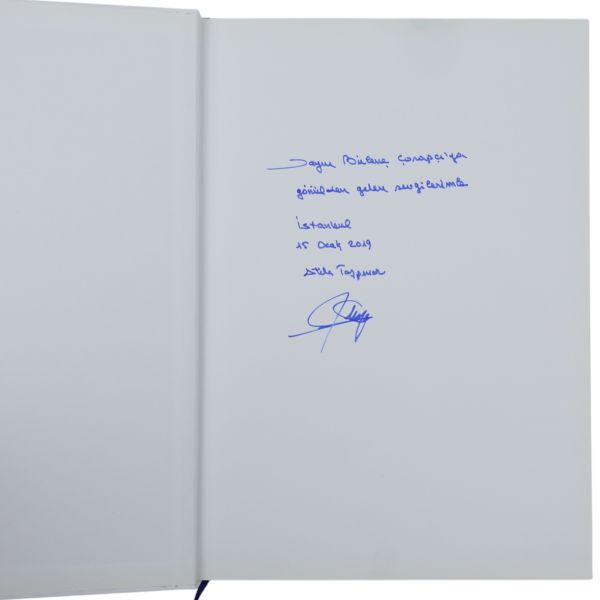 Sayın Birlenç Çorapçı'ya
gönülden gelen sevgilerimle
İstanbul
15 Ocak 2019
Attila Taşpınar